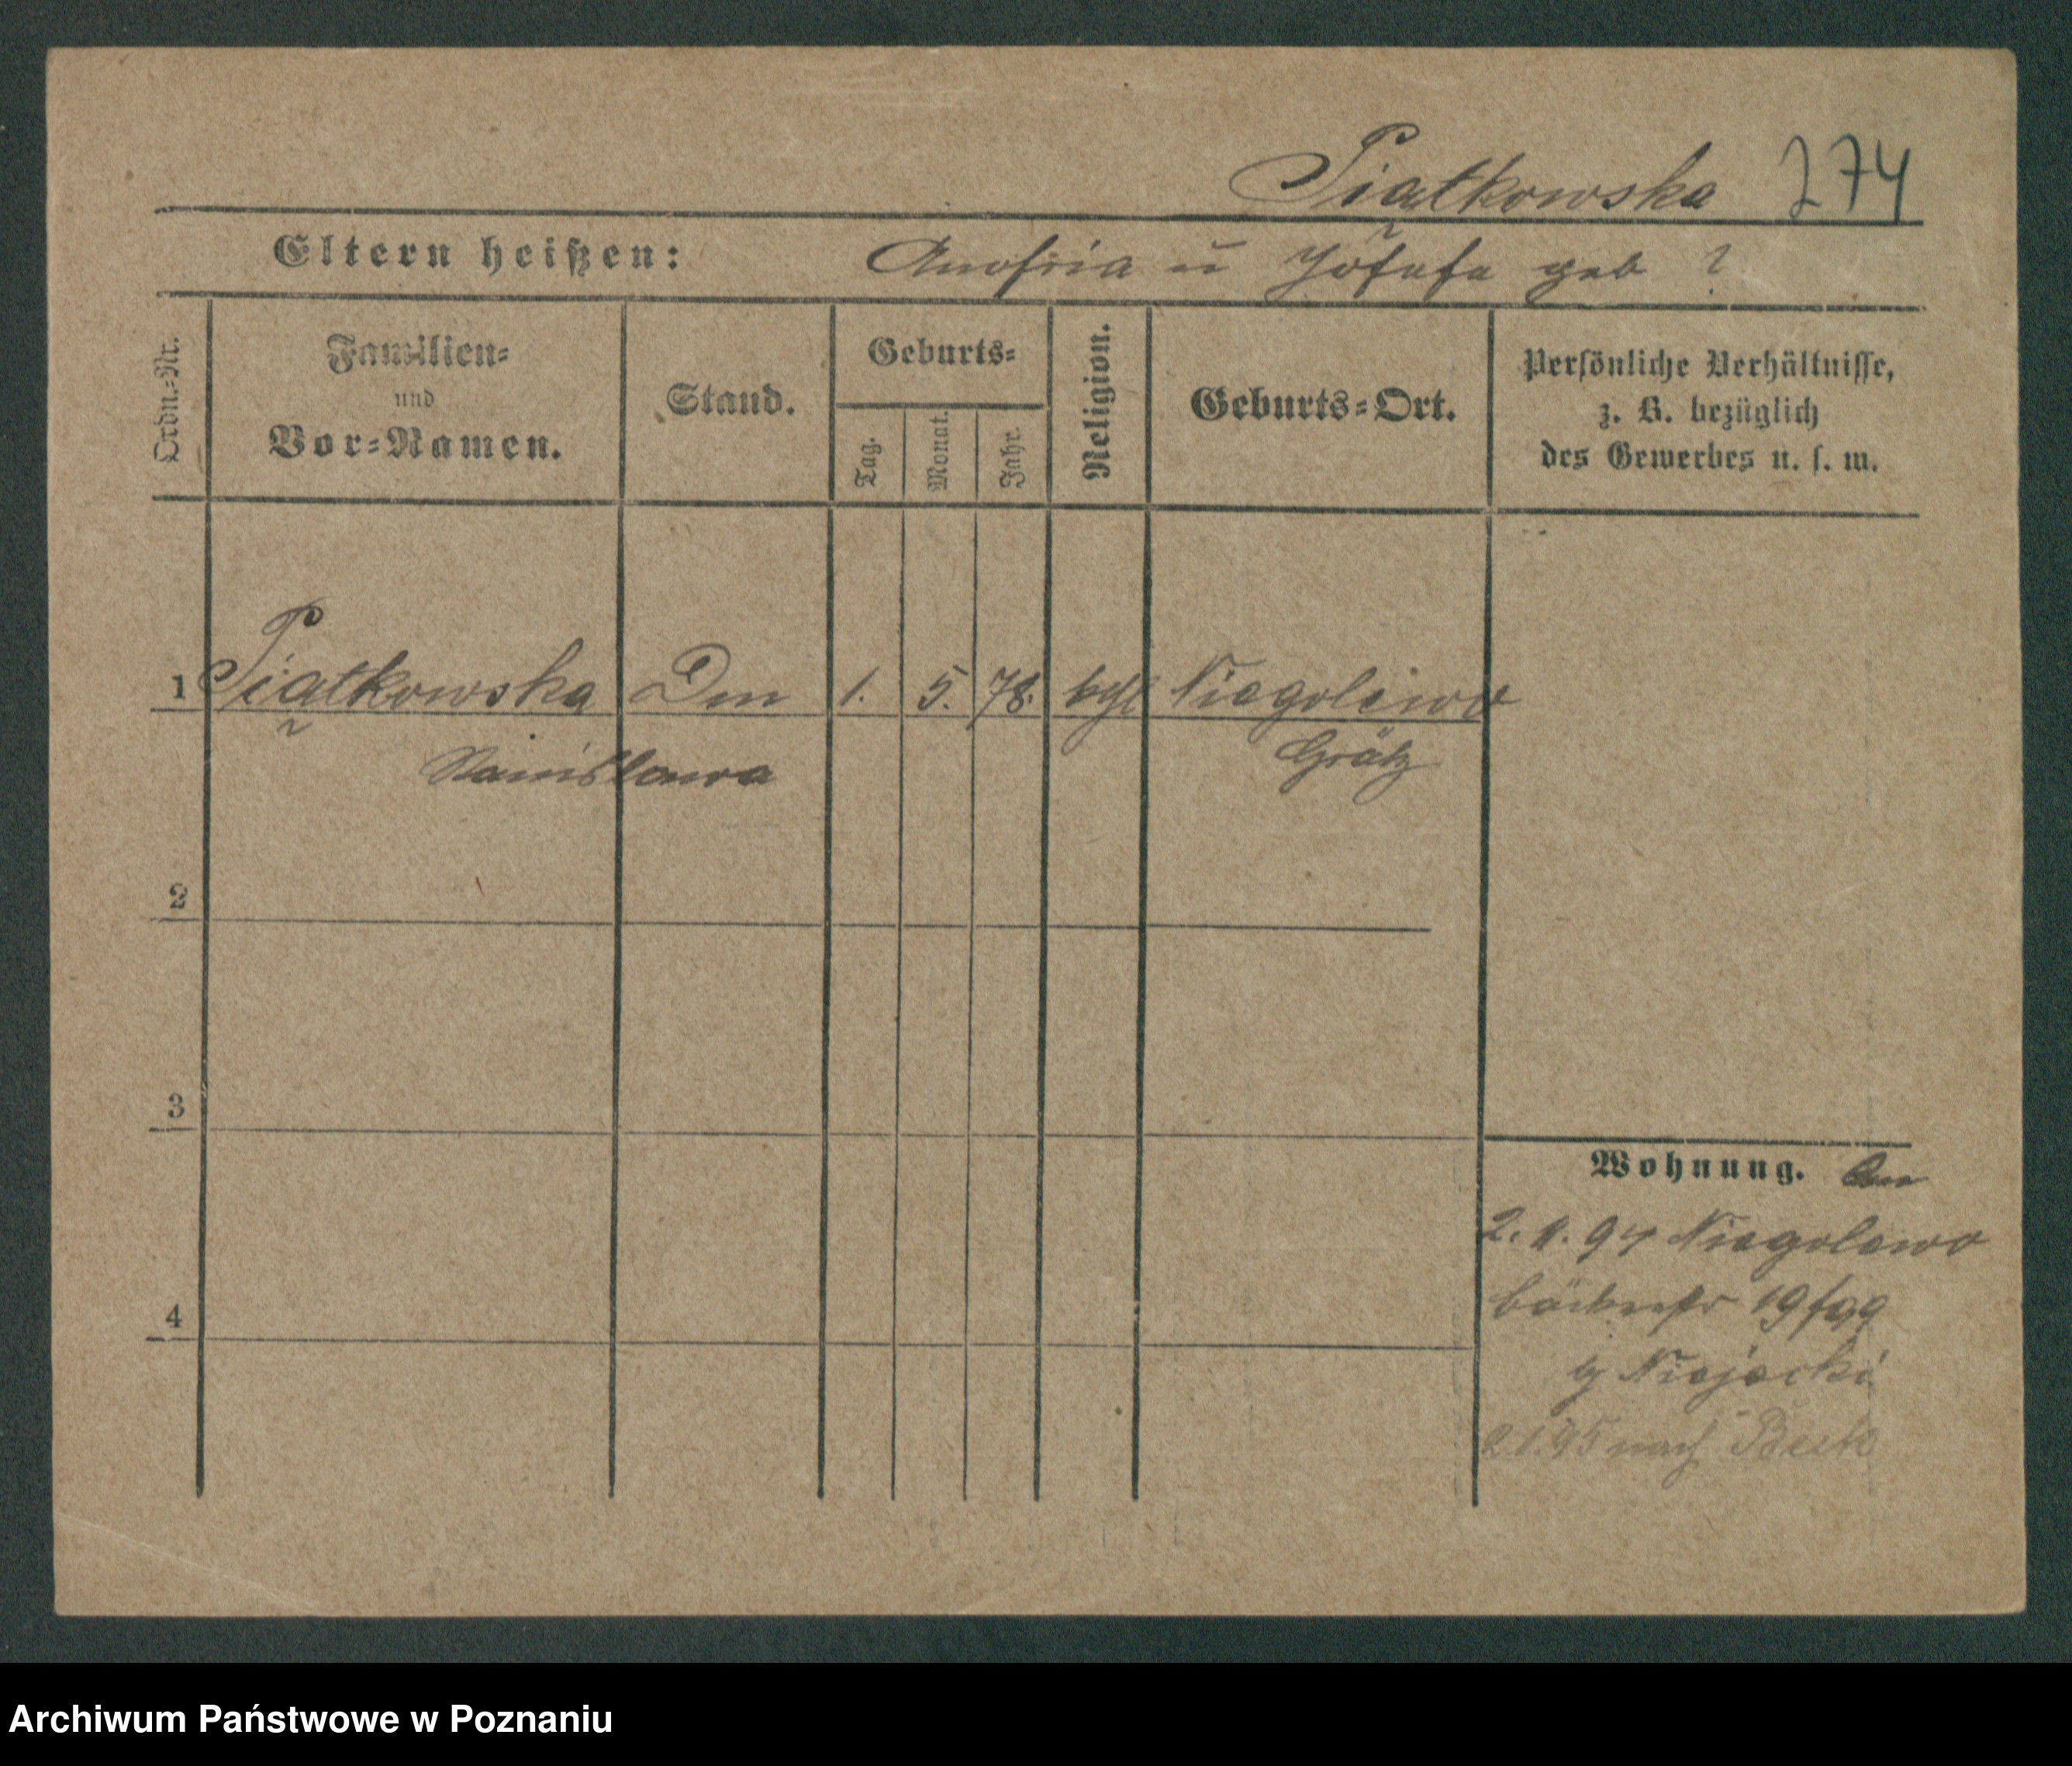 Piatkowska 274
Eltern heißen: u Josefa geb ?
Ordn.-Nr.
Familien-
und
Vor-Namen.
Stand.
Geburts-
Tag.
Monat.
Jahr.
Religion.
Geburts-Ort.
Persönliche Verhältnisse,
z. B. bezüglich
des Gewerbes u. s. w.
1 Piatkowska 1. 5. 78. Niegolewo
Stanislawa Grätz
2
3
4
Wohnung.
94 Niegolewo
19
95 nach Buk
Archiwum Państwowe w Poznaniu